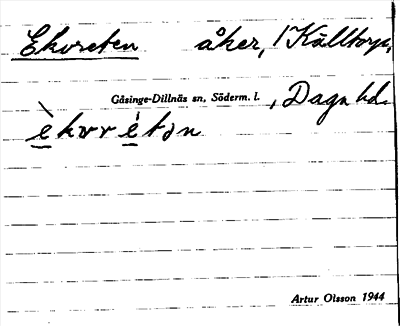 Ekoreten åker, 1 Källtorp,
Gåsinge-Dillnäs sn, Söderm. l. , Daga hd.
è̲kɷrré̲tən
Artur Olsson 1944